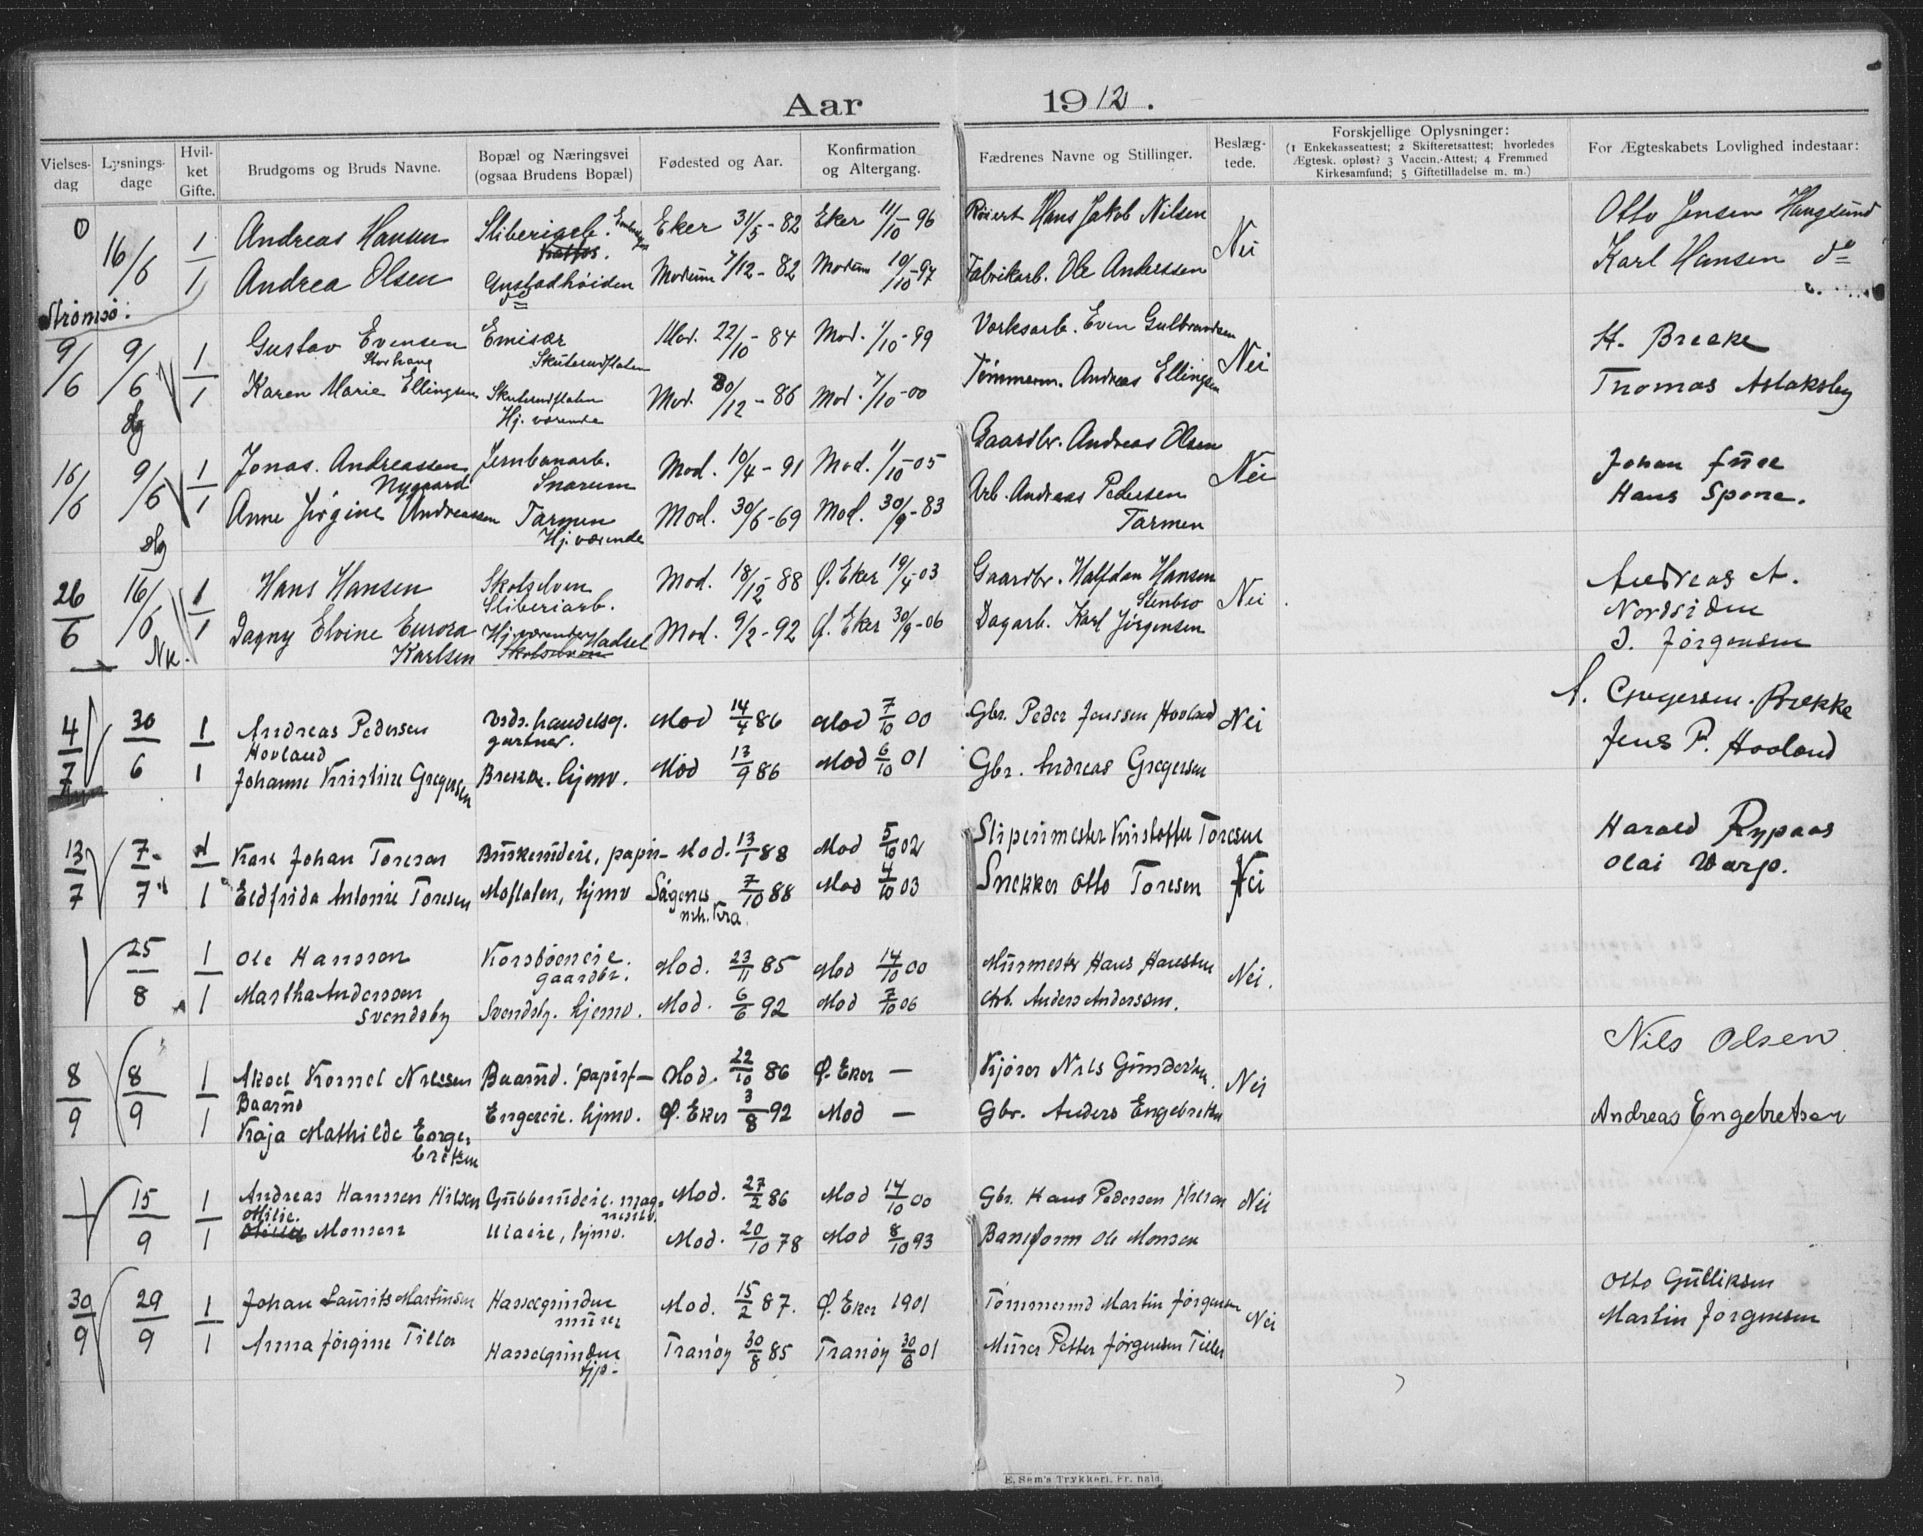 Aar 1912.
Vielsesdag | Lysningsdage | Hvilket Gifte. | Brudgoms og Bruds Navne. | Bopæl og Næringsvei (ogsaa Brudens Bopæl) | Fødested og Aar. | Konfirmation og Altergang. | Fædrenes Navne og Stillinger. | Beslægtede. | Forskjellige Oplysninger: (1 Enkekasseattest; 2 Skifteretsattest; hvorledes Ægtesk. opløst? 3 Vaccin.-Attest; 4 Fremmed Kirkesamfund; 5 Giftetilladelse m. m.) | For Ægteskabets Lovlighed indestaar:
0 | 16/6 | 1 | Andreas Hansen | Sliberiarb. | Eker 31/5-82 | Eker 11/10-96 | Hans Jakob Nilsen | Nei | Otto Jensen Haugsund
1 | Andrea Olsen | Gustadhøiden | Modum 7/12-82 | Modum 10/10-97 | Fabrikarb. Ole Anderssen | Karl Hansen do
Strømsø:
9/6 | 9/6 | 1 | Gustav Evensen | Emisær | Mod. 22/10-84 | Mod. 1/10-99 | Verksarb. Even Gulbrandsen | Nei | H. Brecke
Storhaug | Skuterudflaten
1 | Karen Marie Ellingsen | Skuterudflaten Hj. værende | Mod. 30/12-86 | Mod. 7/10-00 | Tømmerm. Andreas Ellingsen | Thomas Aslaksby
16/6 | 9/6 | 1 | Jonas Andreassen Nygaard | Jernbanarb. Snarum | Mod. 10/4-91 | Mod. 1/10-05 | Gaardbr. Andreas Olsen | Nei | Johan
1 | Anne Jørgine Andreassen | Tarmen Hj. værende | Mod. 30/6-69 | Mod. 30/9-83 | Arb. Andreas Pedersen Tarmen | Hans Spone.
26/6 | 16/6 | 1 | Hans Hansen | Skotselven Sliberiarb. | Mod. 18/12-88 | Ø. Eker 19/4-03 | Gaardbr. Halfdan Hansen Stenbro | Nei | Andreas A. Nordsiden
1 | Dagny Elvine Eurora Karlsen | Hj. værende Hadsel Skotselven | Mod. 9/2-92 | Ø. Eker 30/9-06 | Dagarb. Karl Jørgensen | J. Jørgensen
4/7 | 30/6 | 1 | Andreas Pedersen Hovland | handelsg. gartner. | Mod 14/4 86 | Mod 7/10 00 | Gbr. Peder Jenssen Hovland | Nei | A. Gregersen. Brekke
1 | Johanne Kristine Gregersen | Brekke. hjemv. | Mod 13/9 86 | Mod 6/10 01 | Gbr. Andreas Gregersen | Jens P. Hovland
13/7 | 7/7 | 1 | Kare Johan Toresen | Buskerudeie, papir- | Mod. 13/1 88 | Mod 5/10 02 | Sliperimester Kristoffer Toresen | Nei | Harald Rypaas
1 | Eldfrida Antonie Toresen | Moflaten, hjemv | Sagenes Kra. 7/10 88 | Mod 4/10 03 | Snekker Otto Toresen | Olai Warp.
25/8 | 1 | Ole Hanssen | Korsbøeneie. gaardbr. | Mod. 23/11 85 | Mod 14/10 00 | Murmester Hans Hanssen | Nei.
1 | Martha Anderssen Svendsby | Svendsby. hjemv. | Mod. 6/6 92 | Mod 7/10 06 | Arb. Anders Anderssen.
8/9 | 8/9 | 1 | Aksel Kornel Nilssen Baarud | Baarud. papirf- | Mod. 22/10 86 | Ø. Eker — | Kjører Nils Gundersen. | Nei | Nils Olsen
1 | Kaja Mathilde Engebretsen | Engereie. hjemv. | Ø. Eker 3/8 92 | Mod — | Gbr. Anders Engebretsen | Andreas Engebretsen
15/9 | 1 | Andreas Hanssen Hilsen | Gubberudeie. | Mod. 27/2 86 | Mod 14/10 00 | Gbr. Hans Pedersen Hilsen | Nei
1 | Milie. Monsen | Ulaeie, hjemv. | Mod. 20/10 78 | Mod 8/10 93 | Baneform Ole Monsen
30/9 | 29/9 | 1 | Johan Laurits Martinsen | Hasselgrunden murer | Mod. 15/2 87. | Ø. Eker 1901 | Tømmermd Martin Jørgensen | Nei | Otto Gulliksen
1 | Anna Jørgine Tiller | Hasselgrunden tjp- | Tranøy 30/8 85 | Tranøy 30/6 01 | Murer Petter Jørgensen Tiller | Martin Jørgensen
E. Sem's Trykkeri, Fr. hald.